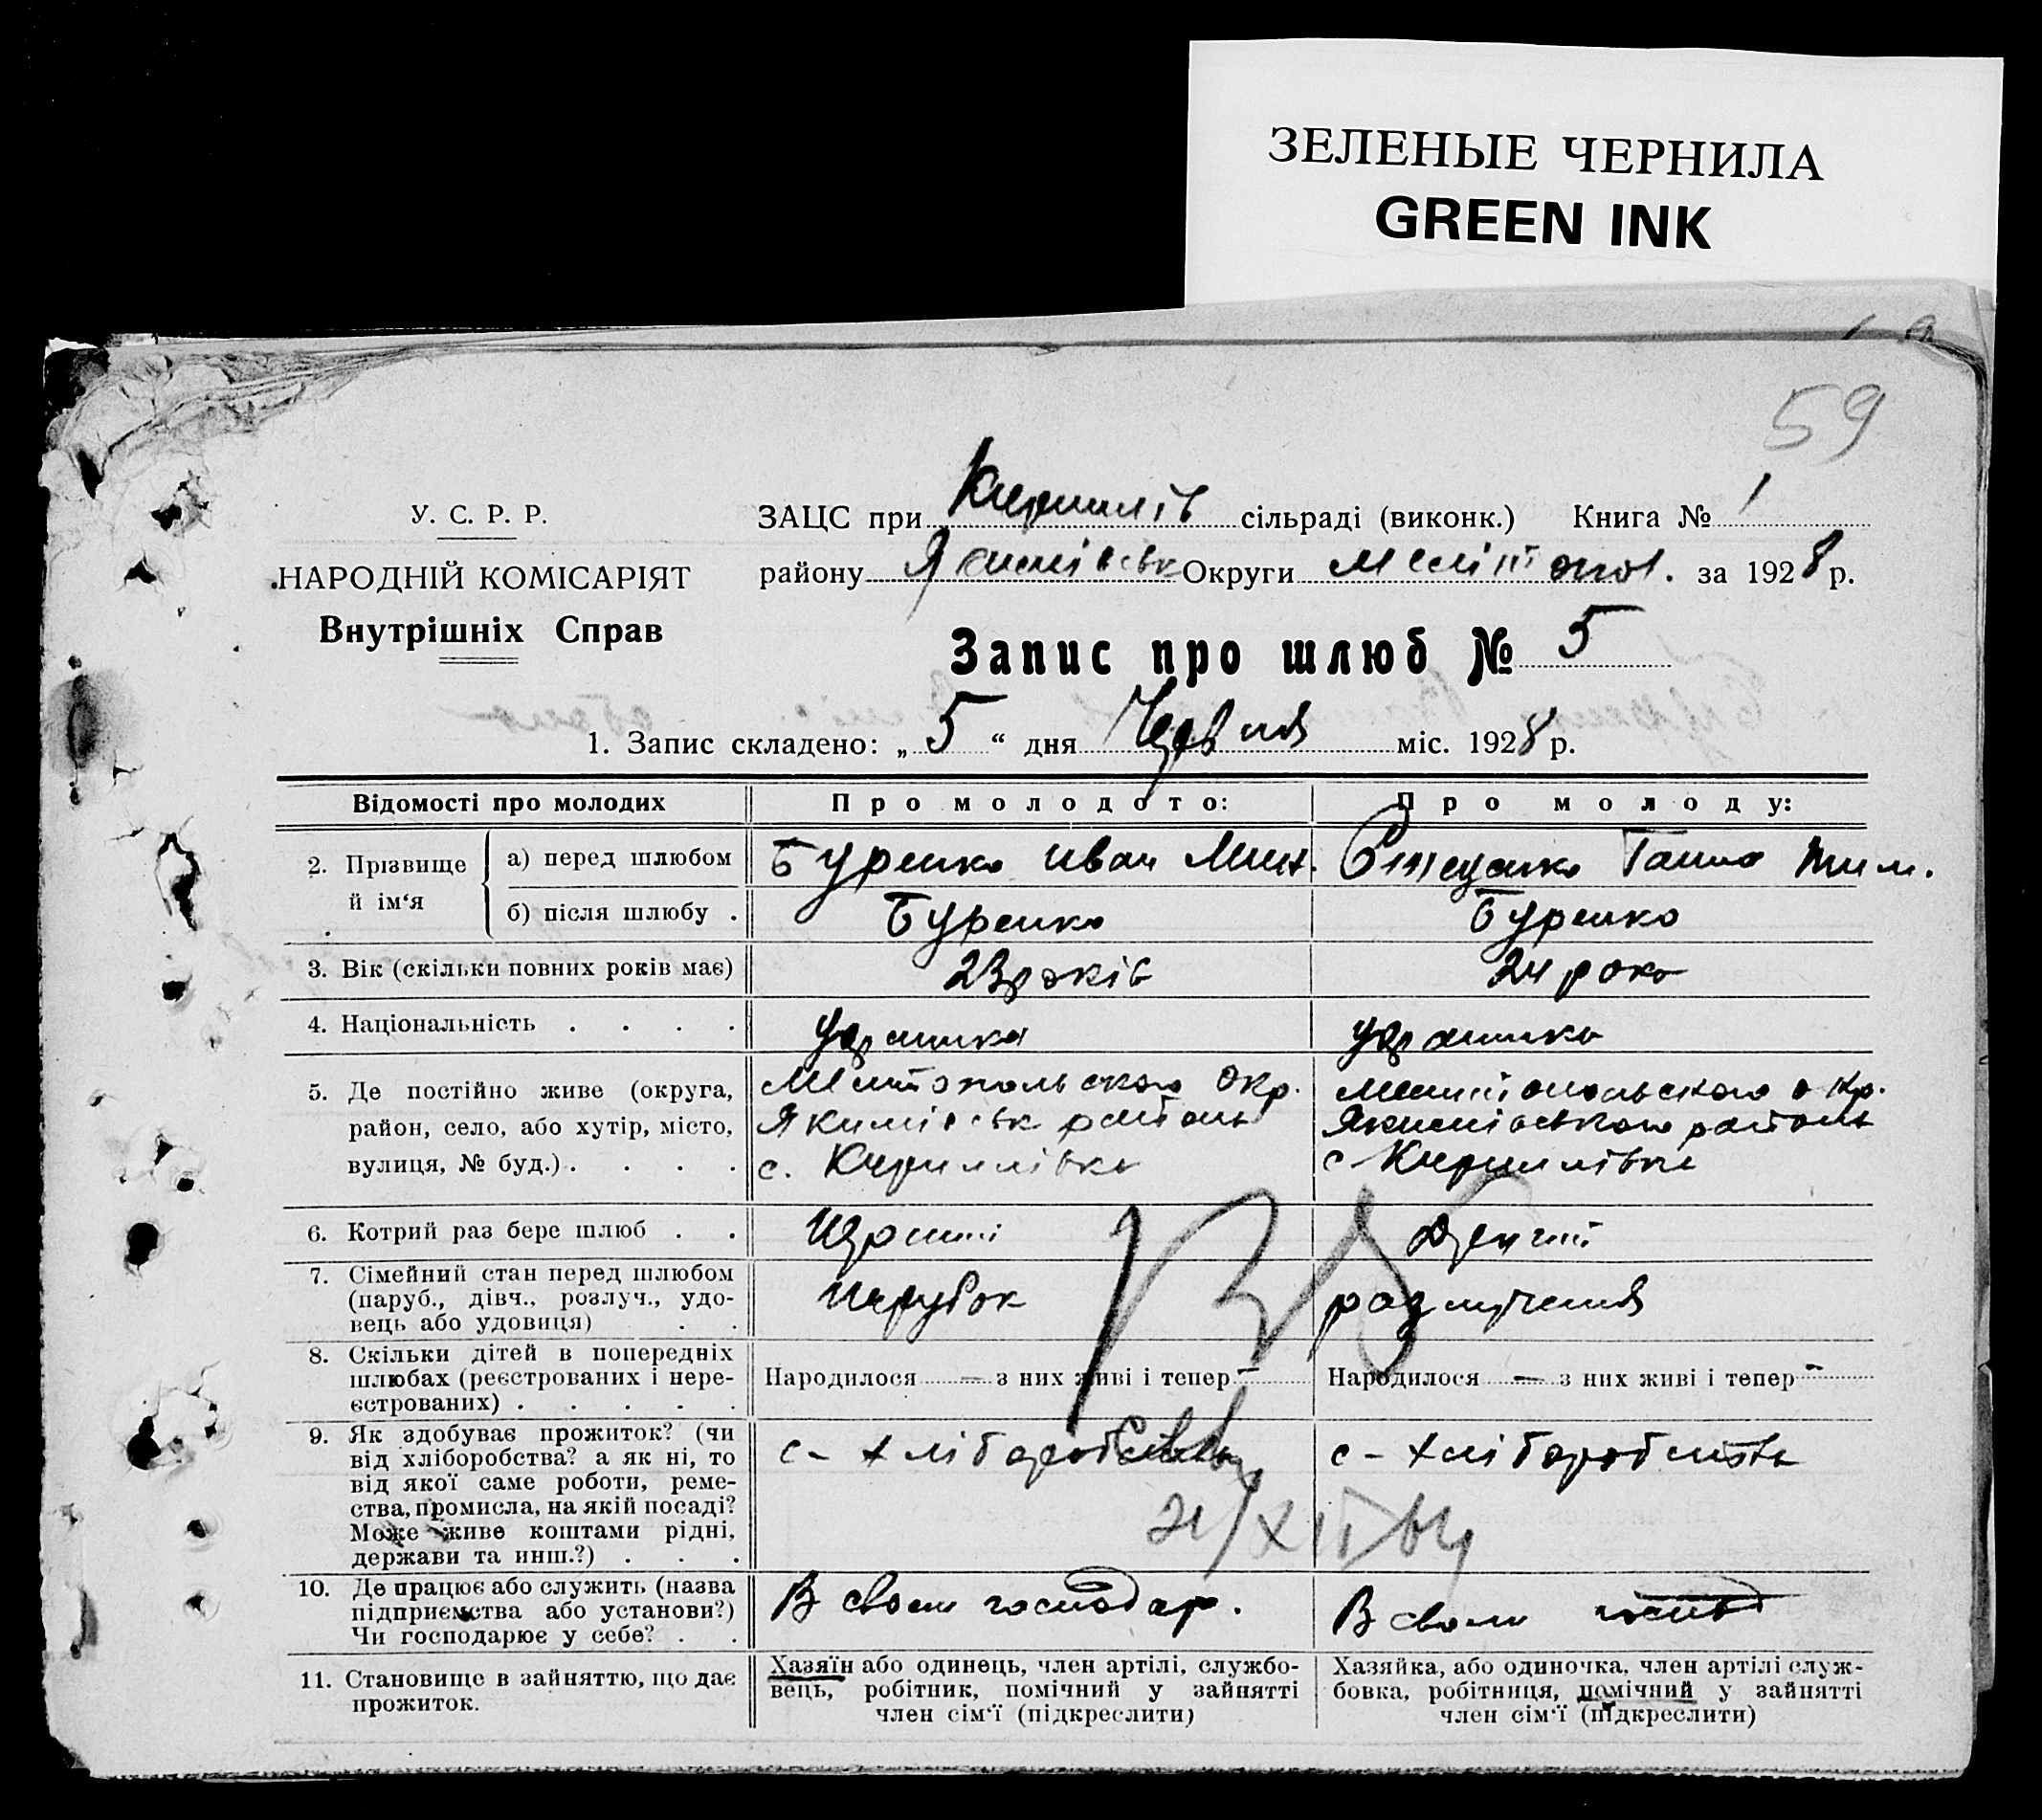 ЗЕЛЕНЫЕ ЧЕРНИЛА
GREEN INK
59
У. С. Р. Р.
НАРОДНІЙ КОМІСАРІЯТ
Внутрішніх Справ
ЗАЦС при Кирилів сільраді (виконк.) Книга № 1
району Якимівськ Округи Мелітопол. за 1928 р.
Запис про шлюб № 5
1. Запис складено: „ 5 “ дня Червня міс. 1928 р.
Відомості про молодих
Про молодого:
Про молоду:
2. Прізвище й ім‘я
а) перед шлюбом
Буренко Иван Мих.
Ганна Тим.
б) після шлюбу .
Буренко
Буренко
3. Вік (скільки повних років має)
23 років
24 роки
4. Національність . . . .
5. Де постійно живе (округа,
район, село, або хутір, місто,
вулиця, № буд.) . . . .
окр.
Якимівськ район
с. Кириллівка
окр.
Якимівського район
с Кириллівка
6. Котрий раз бере шлюб . .
Перший
Другий
7. Сімейний стан перед шлюбом
(паруб., дівч., розлуч., удо-
вець або удовиця) . .
парубок
розлучения
8. Скільки дітей в попередніх
шлюбах (реєстрованих і нере-
єстрованих) . . . . .
Народилося — з них живі і тепер —
Народилося — з них живі і тепер —
9. Як здобуває прожиток? (чи
від хліборобства? а як ні, то
від якої саме роботи, реме-
ства, промисла, на якій посаді?
Може живе коштами рідні,
держави та инш.?) . . .
с - хліборобства
с - хліборобства
10. Де працює або служить (назва
підприємства або установи?)
Чи господарює у себе? . .
В своем господар.
В своем
11. Становище в зайняттю, що дає
прожиток.
Хазяїн або одинець, член артілі, службо-
вець, робітник, помічний у зайнятті
член сім‘ї (підкреслити)
Хазяйка, або одиночка, член артілі служ-
бовка, робітниця, помічний у зайнятті
член сім‘ї (підкреслити)